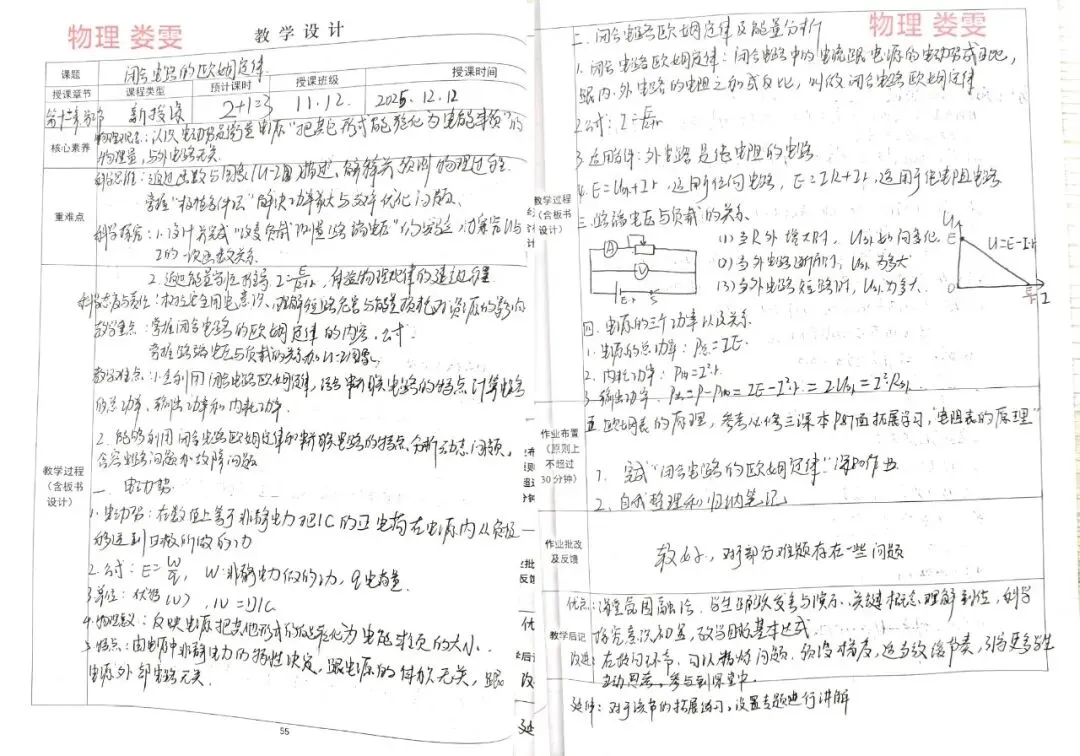 物理 娄雯
教学设计
课题
闭合电路的欧姆定律
授课章节
课程类型
预计课时
授课班级
授课时间
第十二章第2节
新授课
2+1=3
11.12.
2025.12.12
核心素养
物理观念：认识电动势是衡量电源“把其他形式能转化为电能本领”的
物理量，与外电路无关.
科学思维：通过函数与图象(U-I图)描述、解释并预测物理过程.
掌握“极值条件法”解决功率最大与效率优化问题.
重难点
科学探究：1.设计并完成“改变负载测量路端电压”的实验，探究U与
I的一次函数关系.
2.通过能量守恒推导I=E/(R+r)，体验物理规律的建立过程
科学态度与责任：树立安全用电意识、理解短路危害与能量损耗对资源的影响
教学重点：掌握闭合电路的欧姆定律的内容、公式
掌握路端电压与负载的关系及U-I图象.
教学难点：1.会利用闭合电路欧姆定律，结合串并联电路的特点计算电路
的总功率、输出功率和内耗功率.
2.能够利用闭合电路欧姆定律和串并联电路的特点分析动态问题，
含容电路问题和故障问题
教学过程
（含板书
设计）
一、电动势
1.电动势：在数值上等于非静电力把1C的正电荷在电源内从负极
移送到正极所做的功
2.公式：E=W/q，W:非静电力做的功，q电荷量
3.单位：伏特(V)，1V=1J/C
4.物理意义：反映电源把其他形式的能转化为电能本领的大小.
5.特点：由电源中非静电力的特性决定，跟电源的体积无关，跟
电源外部电路无关.
55
物理 娄雯
二、闭合电路欧姆定律及能量分析
1.闭合电路欧姆定律：闭合电路中的电流跟电源的电动势成正比，
跟内、外电路的电阻之和成反比，叫做闭合电路欧姆定律
2.公式：I=E/(R+r)
3.适用条件：外电路是纯电阻的电路.
教学过程
（含板书
设计）
4.E=U外+Ir，适用于任何电路，E=IR+Ir，适用于纯电阻电路
三、路端电压与负载的关系.
A
V
E r
S
(1)当R外增大时，U外如何变化.
(2)当外电路断开时，U外为多大
(3)当外电路短路时，U外为多大.
U
E
U=E-Ir
0
I
四、电源的三个功率以及关系.
1.电源的总功率：P总=IE.
2.内耗功率：P内=I²r.
3.输出功率，P出=P-P内=IE-I²r=IU外=I²R外.
作业布置
（原则上
不超过
30分钟）
五、欧姆表的原理，参考必修三课本 面拓展学习，“电阻表的原理”
1.完成“闭合电路的欧姆定律”课时作业
2.自我整理和归纳笔记
作业批改
及反馈
较好，对于部分难题存在一些问题
教学后记
优点：课堂氛围融洽，学生 思考与演示，关键概念理解到位，科学
探究意识初显，教学目标基本达成
改进：在提问环节，可以精炼问题，预设梯度，适当放缓节奏，引导更多学生
主动思考，参与到课堂中.
延伸：对于该节的拓展练习，设置专题进行讲解